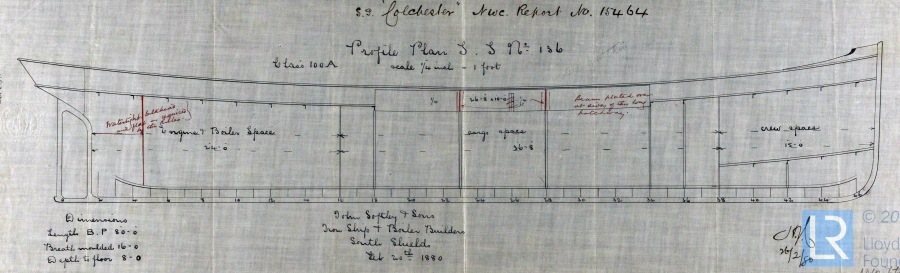 S.S. "Colchester" Nwc. Report No. 15464
Profile Plan S.S No. 136
Class 100A
scale 1/4 inch - 1 foot
26-8 x 10-0
Beam plated over
at sides of this long
hatchway.
Engine & Boiler Space
24-0
cargo space
36-8
crew space
15-0
Dimensions
Length B.P 80-0
Breath moulded 16-0
Depth to floor 8-0
John Softley & Sons
Iron Ship & Boiler Builders
South Shields
Feb 20th 1880
26/2/80
LR
© 20
Lloyd
Foun